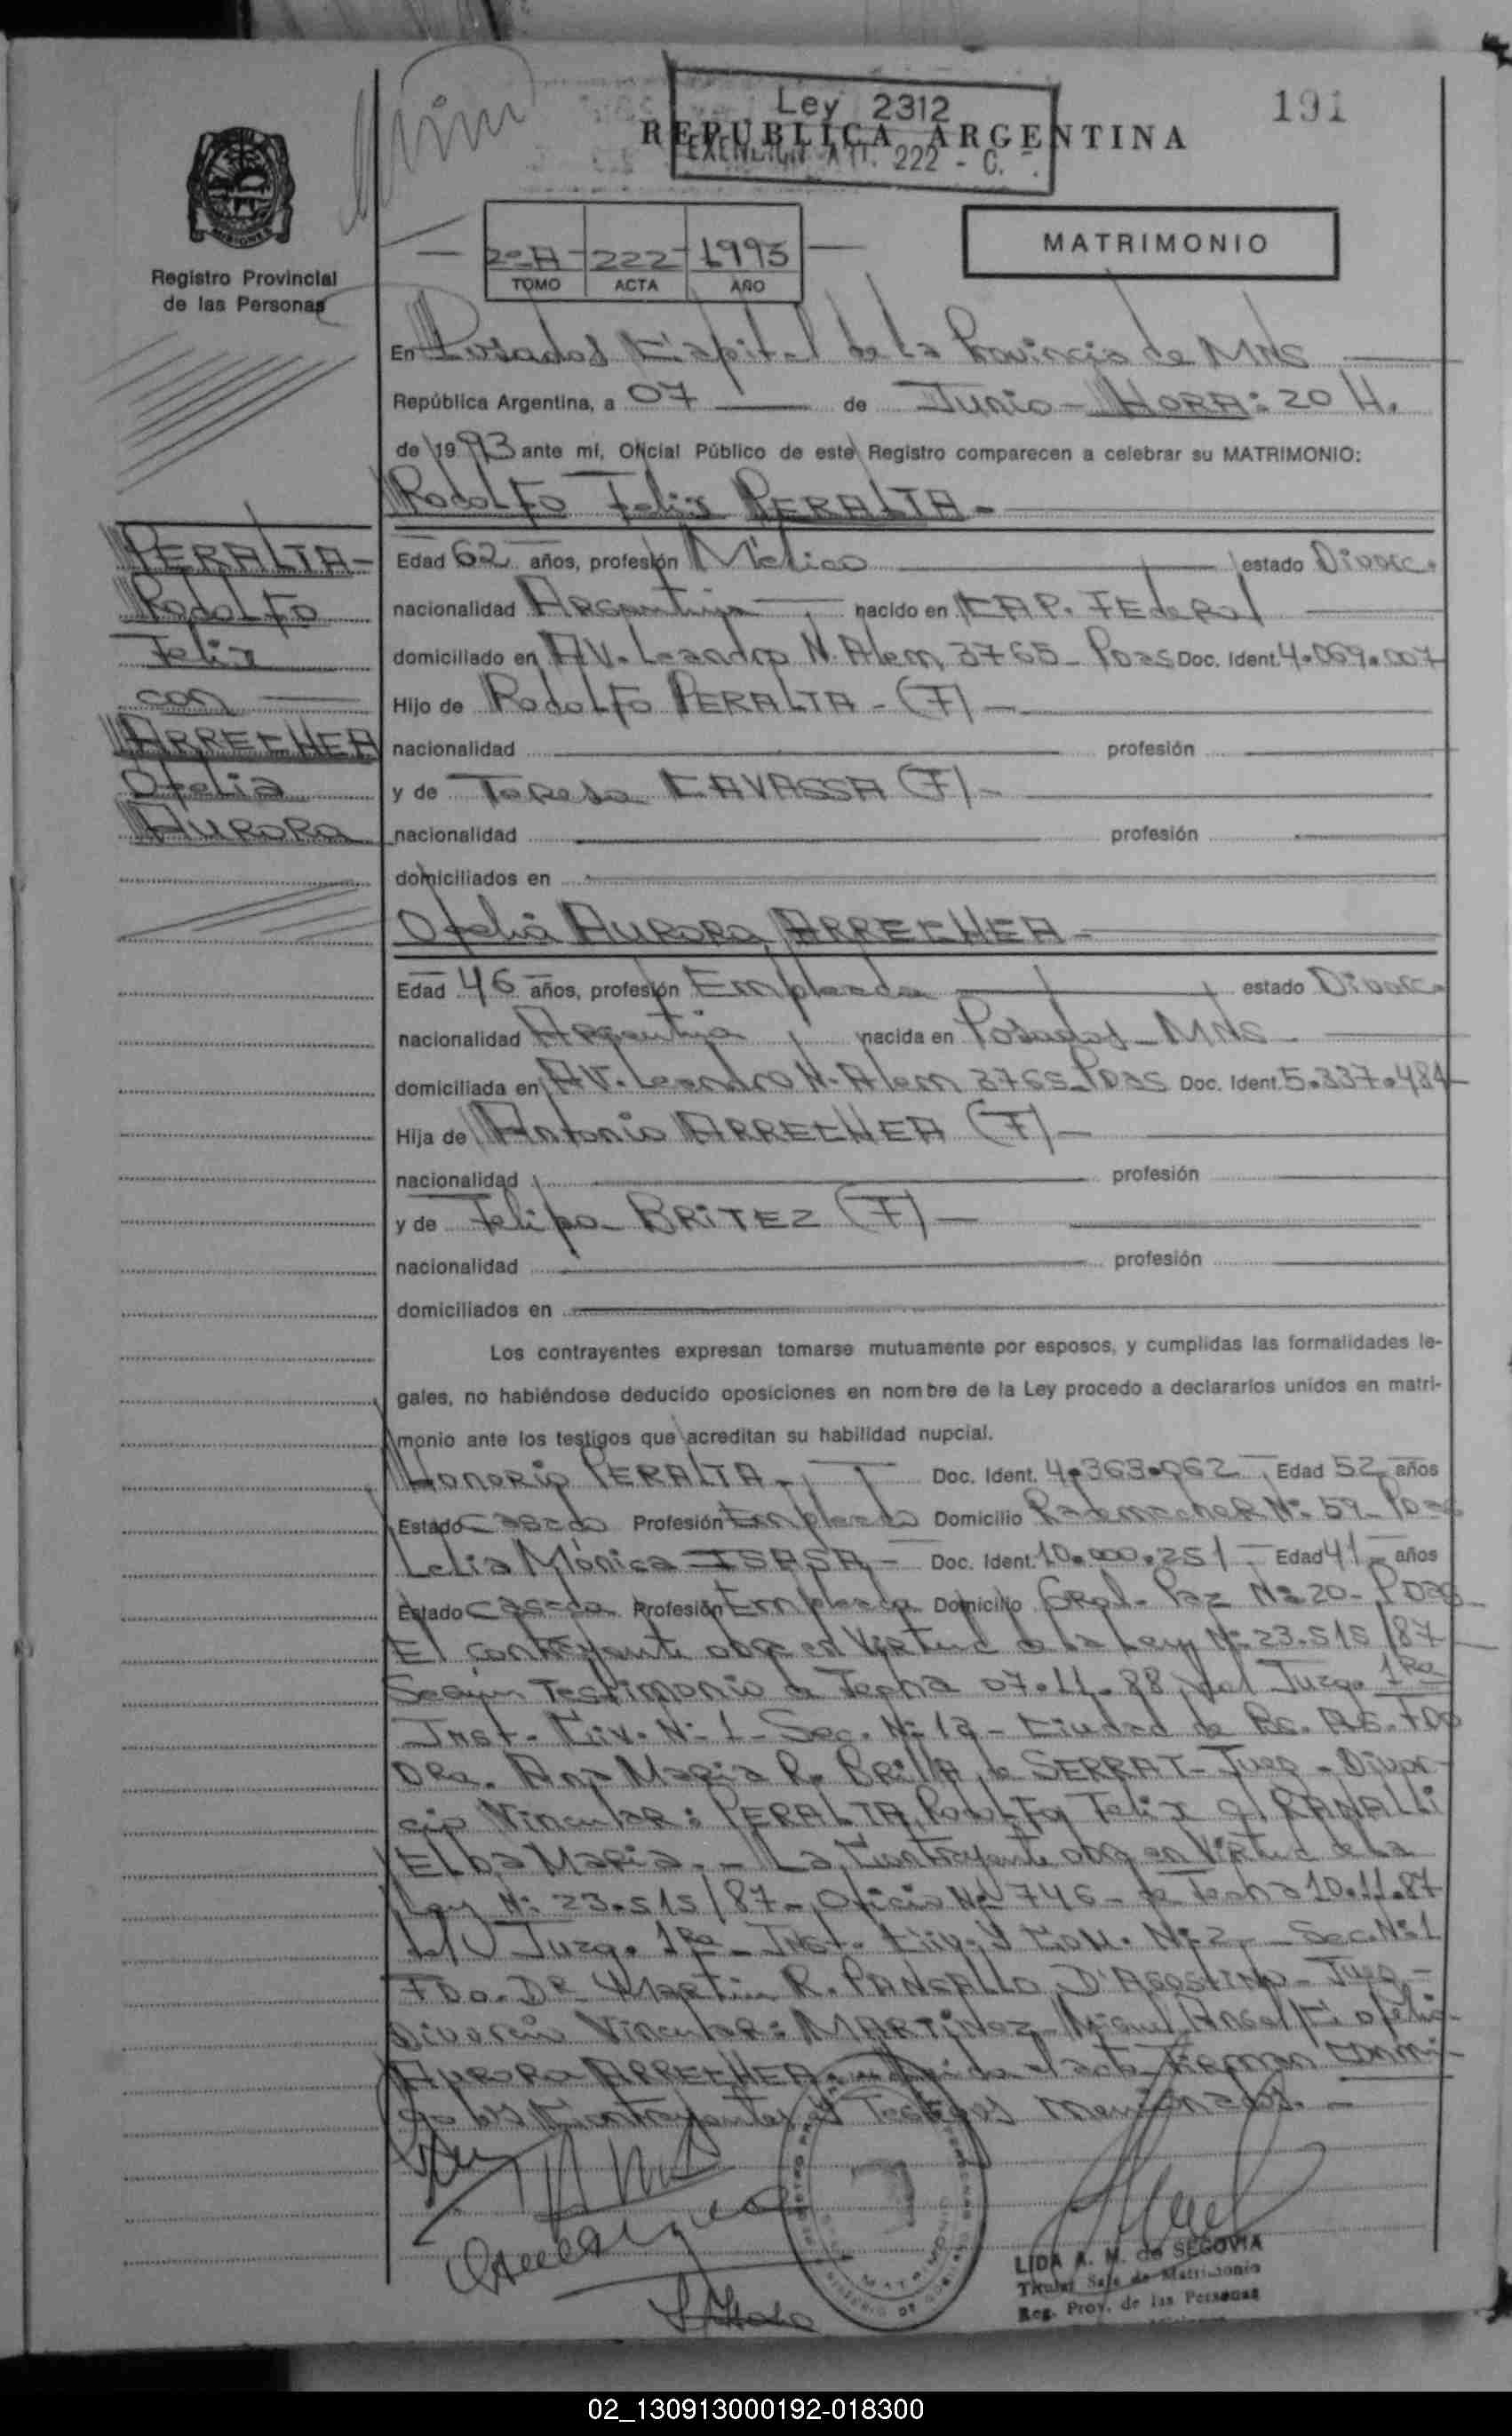 191
Ley 2312
REPUBLICA ARGENTINA
EXENCION Art. 222 - C.
MISIONES
Registro Provincial
de las Personas
2º A - 222 - 1993
TOMO ACTA AÑO
MATRIMONIO
En Posadas Capital de la Provincia de MNS
República Argentina, a 07 de Junio - HORA: 20 H.
de 1993 ante mí, Oficial Público de este Registro comparecen a celebrar su MATRIMONIO:
Rodolfo Felix PERALTA -
PERALTA -
Rodolfo
Felix
con
ARRECHEA
Ofelia
Aurora
Edad 62 años, profesión Médico estado Divorc.
nacionalidad Argentina nacido en CAP. Federal
domiciliado en AV. Leandro N. Alem 3765 - Pdas Doc. Ident. 4.069.007
Hijo de Rodolfo PERALTA - (F) -
nacionalidad profesión
y de Teresa CAVASSA (F) -
nacionalidad profesión
domiciliados en
Ofelia Aurora ARRECHEA -
Edad 46 años, profesión Empleada estado Divorc.
nacionalidad Argentina nacida en Posadas - MNS -
domiciliada en AV. Leandro N. Alem 3765 - Pdas Doc. Ident. 5.337.484
Hija de Antonio ARRECHEA (F) -
nacionalidad profesión
y de Felipa BRITEZ (F) -
nacionalidad profesión
domiciliados en
Los contrayentes expresan tomarse mutuamente por esposos, y cumplidas las formalidades le-
gales, no habiéndose deducido oposiciones en nombre de la Ley procedo a declararlos unidos en matri-
monio ante los testigos que acreditan su habilidad nupcial.
Honorio PERALTA - Doc. Ident. 4.363.062 Edad 52 años
Estado Casado Profesión Empleado Domicilio Rademacher Nº 59 - Pdas
Lelia Mónica ISASA - Doc. Ident. 10.000.251 - Edad 41 - años
Estado Casada Profesión Empleada Domicilio Gral. Paz Nº 20 - Pdas
El contrayente obra en Virtud de la Ley Nº 23.515/87
Según Testimonio de Fecha 07.11.88 del Juzg. 1ra
Inst. Civ. Nº 1 - Sec. Nº 1 - Ciudad de Bs. As. Fdo
Dra. Ana Maria R. Brilla de SERRAT - Juez - Divor-
cio Vincular: PERALTA, Rodolfo Felix c/ RANALLI
Elba Maria. - La Contrayente obra en Virtud de la
Ley Nº 23.515/87 - Oficio Nº 746 - de Fecha 10.11.87
del Juzg. 1ra - Inst. Civ. y Com. Nº 2 - Sec. Nº 1
Fdo. Dr Martin R. PANGALLO D'AGOSTINO - Juez -
Divorcio Vincular: MARTINEZ Miguel Angel c/ Ofelia
Aurora ARRECHEA. el acta Firman conmi-
go los Contrayentes y Testigos mencionados. -
MATRIMONIO
LIDA A. M. de SEGOVIA
Titular Sala de Matrimonio
Reg. Prov. de las Personas
02_130913000192-018300